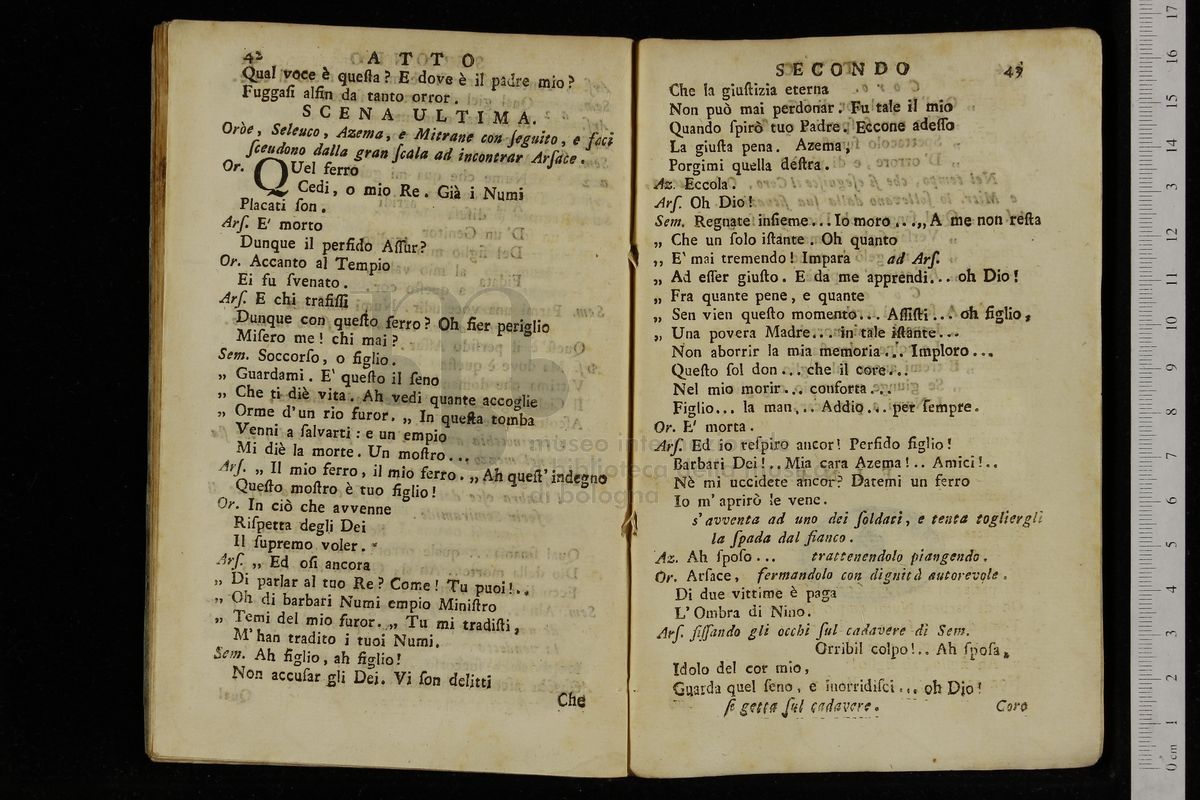 42 ATTO
Qual voce è queſta? E dove è il padre mio?
Fuggaſi alfin da tanto orror.
SCENA ULTIMA.
Oròe, Seleuco, Azema, e Mitrane con ſeguito, e faci
ſcendono dalla gran ſcala ad incontrar Arſace.
Or. QUel ferro
Cedi, o mio Re. Già i Numi
Placati ſon.
Arſ. E' morto
Dunque il perfido Aſſur?
Or. Accanto al Tempio
Ei fu ſvenato.
Arſ. E chi trafiſſi
Dunque con queſto ferro? Oh fier periglio
Miſero me! chi mai?
Sem. Soccorſo, o figlio.
„ Guardami. E' queſto il ſeno
„ Che ti diè vita. Ah vedi quante accoglie
„ Orme d'un rio furor. „ In queſta tomba
Venni a ſalvarti: e un empio
Mi diè la morte. Un moſtro...
Arſ. „ Il mio ferro, il mio ferro. „ Ah queſt' indegno
Queſto moſtro è tuo figlio!
Or. In ciò che avvenne
Riſpetta degli Dei
Il ſupremo voler.
Arſ. „ Ed oſi ancora
„ Di parlar al tuo Re? Come! Tu puoi!..
„ Oh di barbari Numi empio Miniſtro
„ Temi del mio furor. „ Tu mi tradiſti,
M'han tradito i tuoi Numi.
Sem. Ah figlio, ah figlio!
Non accuſar gli Dei. Vi ſon delitti
Che
SECONDO 43
Che la giuſtizia eterna
Non può mai perdonar. Fu tale il mio
Quando ſpirò tuo Padre. Eccone adeſſo
La giuſta pena. Azema,
Porgimi quella deſtra.
Az. Eccola.
Arſ. Oh Dio!
Sem. Regnate inſieme... Io moro ... „ A me non reſta
„ Che un ſolo iſtante. Oh quanto
„ E' mai tremendo! Impara ad Arſ.
„ Ad eſſer giuſto. E da me apprendi... oh Dio!
„ Fra quante pene, e quante
„ Sen vien queſto momento... Aſſiſti... oh figlio,
„ Una povera Madre... in tale iſtante...
Non aborrir la mia memoria... Imploro...
Queſto ſol don... che il core...
Nel mio morir... conforta...
Figlio... la man... Addio... per ſempre.
Or. E' morta.
Arſ. Ed io reſpiro ancor! Perfido figlio!
Barbari Dei!.. Mia cara Azema!.. Amici!..
Nè mi uccidete ancor? Datemi un ferro
Io m' aprirò le vene.
s'avventa ad uno dei ſoldati, e tenta togliergli
la ſpada dal fianco.
Az. Ah ſpoſo... trattenendolo piangendo.
Or. Arſace, fermandolo con dignità autorevole.
Di due vittime è paga
L'Ombra di Nino.
Arſ. fiſſando gli occhi ſul cadavere di Sem.
Orribil colpo!.. Ah ſpoſa,
Idolo del cor mio,
Guarda quel ſeno, e inorridiſci... oh Dio!
ſi getta ſul cadavere.
Coro
museo internazionale
e biblioteca della musica
di bologna
0 cm 1 2 3 4 5 6 7 8 9 10 11 12 13 14 15 16 17